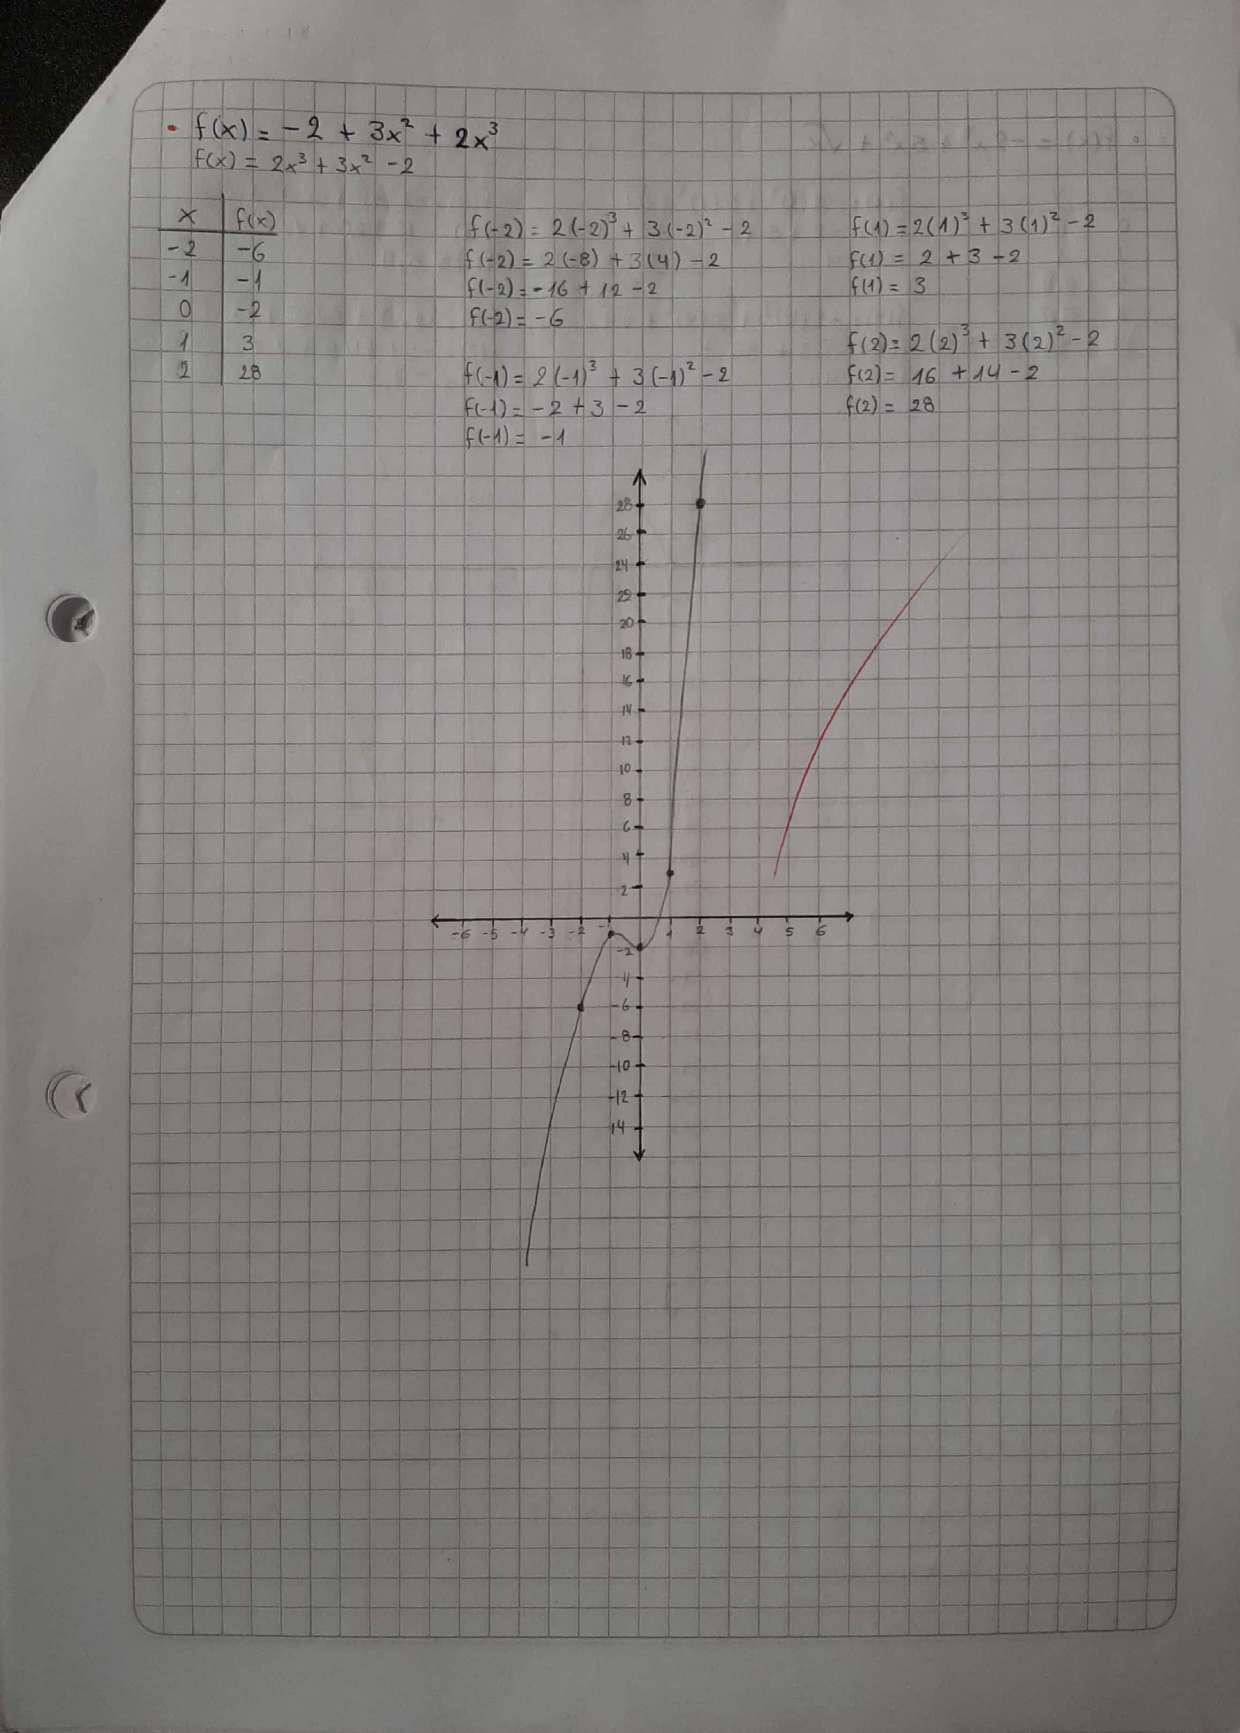 • f(x) = -2 + 3x² + 2x³
f(x) = 2x³ + 3x² - 2
x f(x)
-2 -6
-1 -1
0 -2
1 3
2 28
f(-2) = 2(-2)³ + 3(-2)² - 2
f(-2) = 2(-8) + 3(4) - 2
f(-2) = -16 + 12 - 2
f(-2) = -6
f(-1) = 2(-1)³ + 3(-1)² - 2
f(-1) = -2 + 3 - 2
f(-1) = -1
f(1) = 2(1)³ + 3(1)² - 2
f(1) = 2 + 3 - 2
f(1) = 3
f(2) = 2(2)³ + 3(2)² - 2
f(2) = 16 + 14 - 2
f(2) = 28
28
26
24
22
20
18
16
14
12
10
8
6
4
2
-6 -5 -4 -3 -2 -1 1 2 3 4 5 6
-2
4
-6
-8
-10
-12
14